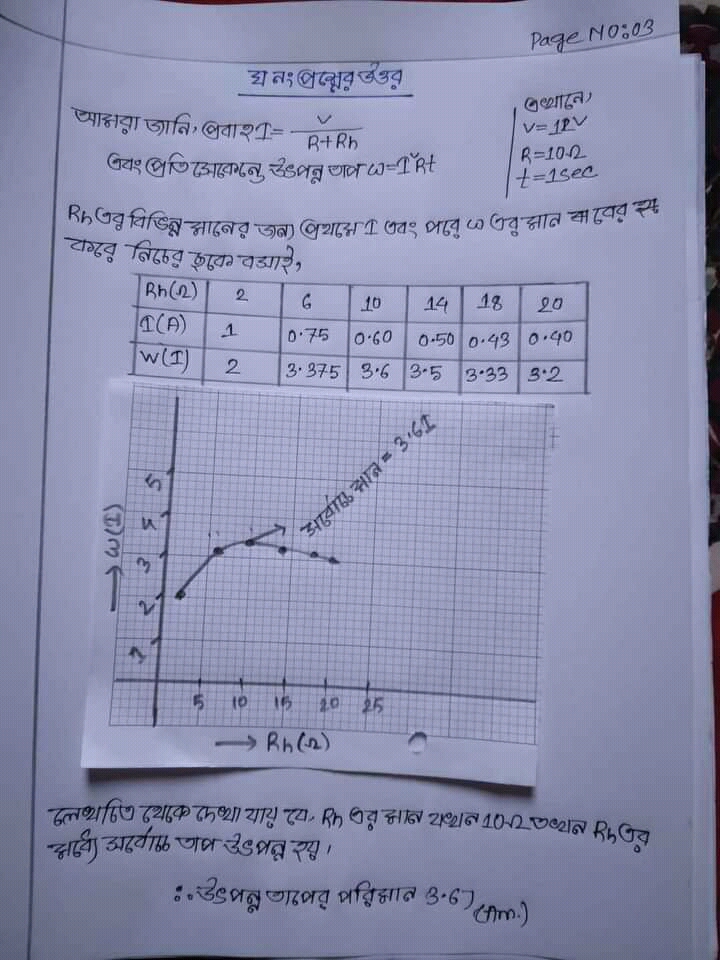 Page NO:03
ঘ নং প্রশ্নের উত্তর
আমরা জানি, প্রবাহ I = V / R+Rh
এবং প্রতি সেকেন্ডে উৎপন্ন তাপ ω = I²Rt
এখানে,
V = 12V
R = 10Ω
t = 1sec
Rh এর বিভিন্ন মানের জন্য প্রথমে I এবং পরে ω এর মান বের
করে নিচের ছকে বসাই,
Rh(Ω) 2 6 10 14 18 20
I(A) 1 0.75 0.60 0.50 0.43 0.40
W(I) 2 3.375 3.6 3.5 3.33 3.2
সর্বোচ্চ মান = 3.6I
→ ω(I)
5
4
3
2
1
5 10 15 20 25
→ Rh(Ω)
লেখচিত্র থেকে দেখা যায় যে, Rh এর মান যখন 10Ω তখন Rh এর
মধ্যে সর্বোচ্চ তাপ উৎপন্ন হয়।
∴ উৎপন্ন তাপের পরিমান 3.6J
(Am.)